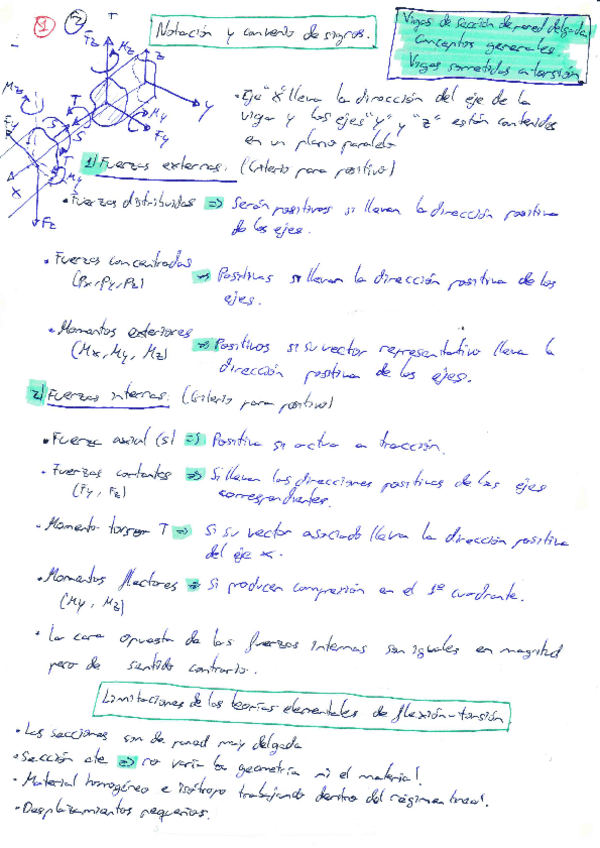 1
2
Notación y convenio de signos.
Vigas de sección de pared delgada
Conceptos generales.
Vigas sometidas a torsión
T
Fz
Mz
z
y
My
Fy
T
S
Mz
Fy
S
T
My
x
Fz
• Eje "x" lleva la dirección del eje de la
viga y los ejes "y" y "z" están contenidos
en un plano paralelo
1) Fuerzas externas: (Criterio para positivo)
• Fuerzas distribuidas => Serán positivas si llevan la dirección positiva
de los ejes.
• Fuerzas concentradas => Positivas si llevan la dirección positiva de los
(Px, Py, Pz) ejes.
• Momentos exteriores => Positivos si su vector representativo lleva la
(Mx, My, Mz) dirección positiva de los ejes.
2) Fuerzas internas: (Criterio para positivo)
• Fuerza axial (S) => Positiva si actua a tracción.
• Fuerzas cortantes => Si llevan las direcciones positivas de los ejes
(Fy, Fz) correspondientes.
• Momento torsor T => Si su vector asociado lleva la dirección positiva
del eje x.
• Momentos flectores => Si producen compresión en el 1º cuadrante.
(My, Mz)
• La cara opuesta de las fuerzas internas son iguales en magnitud
pero de sentido contrario.
Limitaciones de las teorías elementales de flexión-torsión
• Las secciones son de pared muy delgada
• Sección cte => no varía la geometría ni el material.
• Material homogéneo e isótropo trabajando dentro del régimen lineal.
• Desplazamientos pequeños.